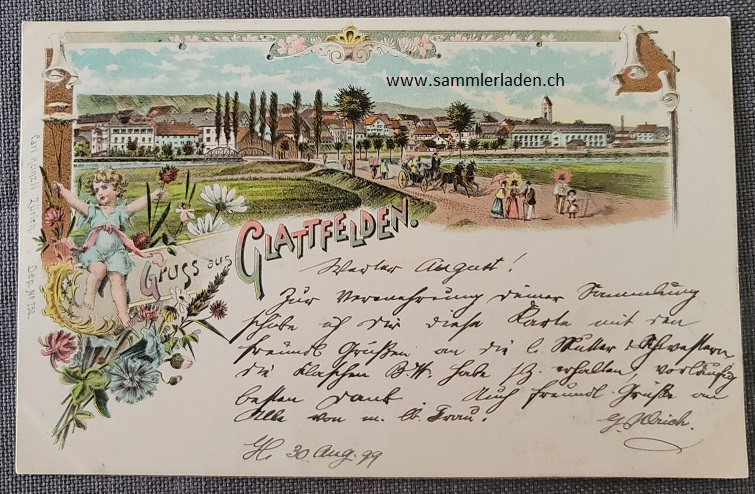 www.sammlerladen.ch
Carl Künzli, Zürich. Dep. No
Gruss aus GLATTFELDEN.
Werter August!
Zur Vermehrung deiner Sammlung
schicke ich dir diese Karte mit den
freundl. Grüßen an die l. Mutter & Schwestern
die Flaschen hab erhalten, vorläufig
besten Dank. Auch freundl. Grüße an
Alle von m. lb. Frau.
Ulrich.
30 Aug. 99